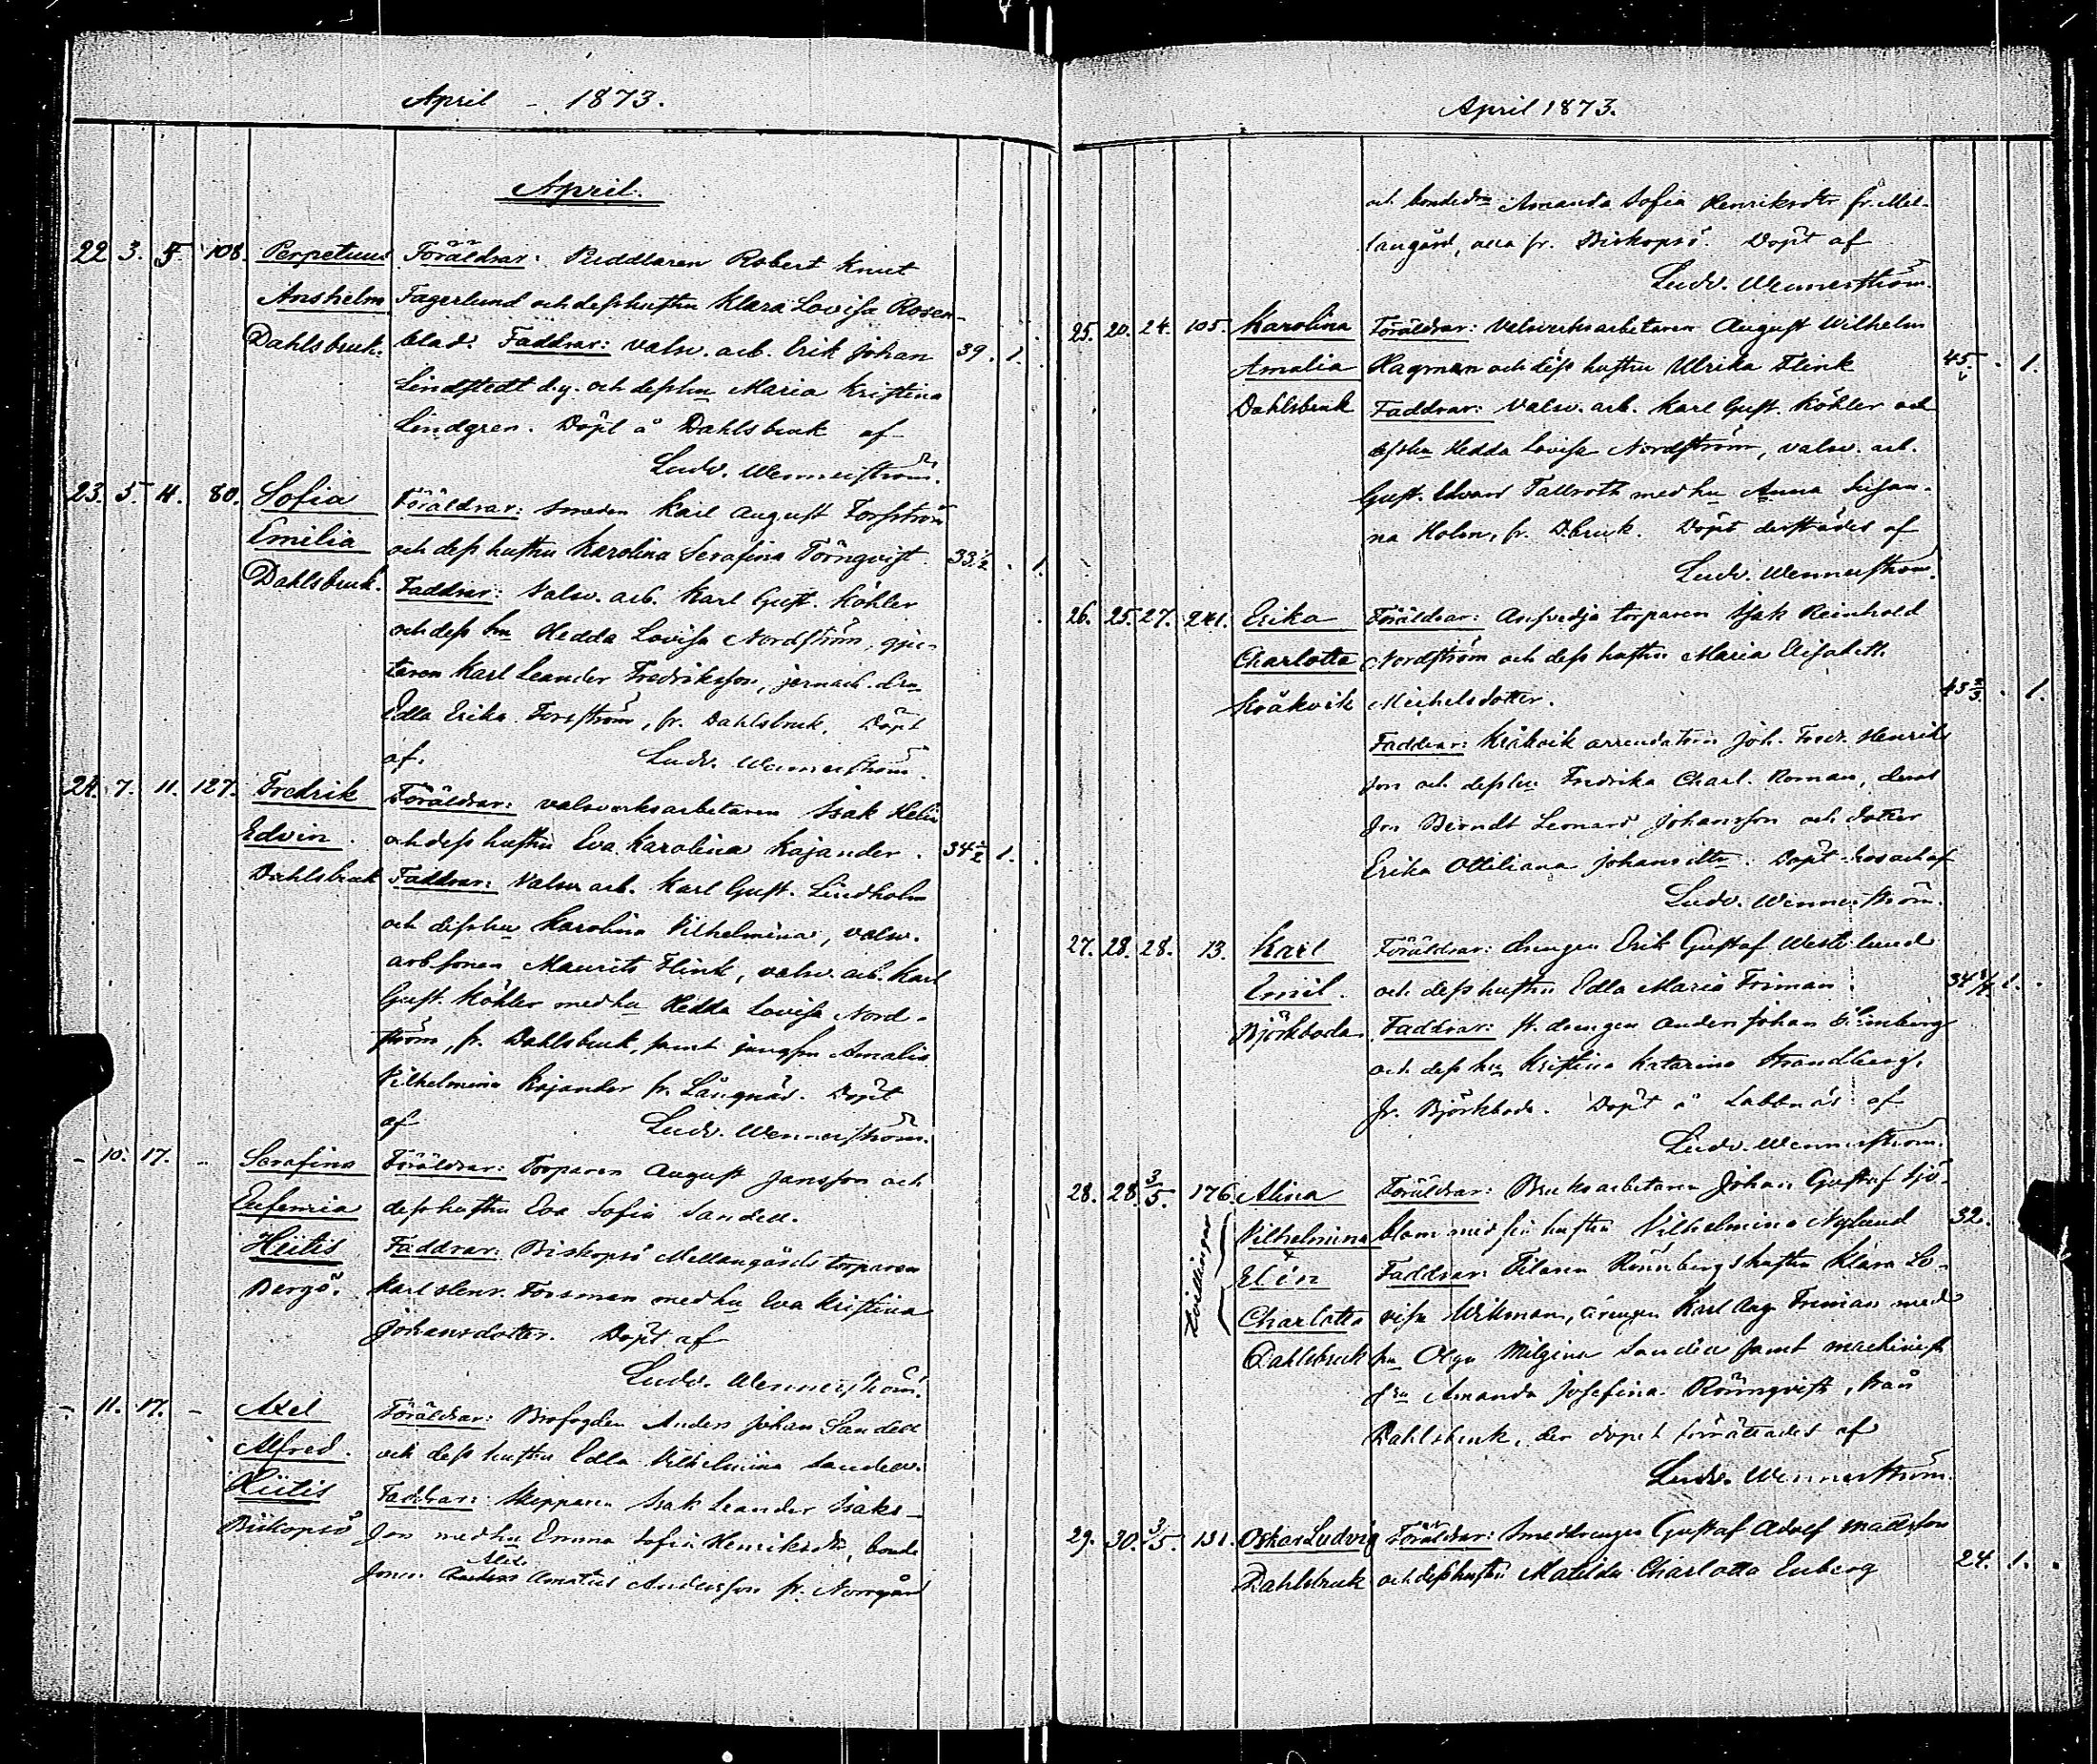 April - 1873.
April.
22 3. 5. 108. Perpetuus Föräldrar: Puddlaren Robert Knut
Anshelm Fagerlund och dess hustru Klara Lovisa Rosen-
Dahlsbruk. blad. Faddrar: valsv. arb. Erik Johan 39. 1.
Lindstedt d.y. och dess hu Maria Kristina
Lindgren. Döpt å Dahlsbruk af
Ludv. Wennerström.
23. 5. 80. Sofia Föräldrar: Smeden Karl August Forsström
Emilia och dess hustru Karolina Serafina Törnqvist 33 1/2 . 1.
Dahlsbruk. Faddrar: Valsv. arb. Karl Gust. Köhler
och dess hu Hedda Lovisa Nordström, gju-
taren Karl Leander Fredriksson, jernarb. drn
Edla Erika Forsström, fr. Dahlsbruk. Döpt
af. Ludv. Wennerström.
24. 7. 11. 127. Fredrik Föräldrar: valsverksarbetaren Isak Helin
Edvin. och dess hustru Eva Karolina Kajander. 34 1/2 1.
Dahlsbruk Faddrar: Valsv arb. Karl Gust. Lindholm
och dess hu Karolina Vilhelmina, valsv.
arb sonen Maurits Flink, valsv. arb. Karl
Gust. Köhler med hu Hedda Lovisa Nord-
ström, fr. Dahlsbruk, samt jungfru Amalia
Vilhelmina Kajander fr. Långnäs. Döpt
af Ludv. Wennerström.
- 10. 17. - Serafina Föräldrar: Torparen August Jansson och
Eufemia dess hustru Eva Sofia Sandell.
Hiitis Faddrar: Biskopsö Mellangårds torparen
Bergö. Karl Henr. Forsman med hu Eva Kristina
Johansdotter. Döpt af
Ludv. Wennerström.
- 11. 17. - Axel Föräldrar: Brofogden Anders Johan Sandell
Alfred. och dess hustru Edla Vilhelmina Sandell.
Hiitis Faddrar: Skepparen Isak Leander Isaks-
Biskopsö son med hu Emma Sofia Henriksdtr, bonde
sonen Amatus Andersson fr. Norrgård
April 1873.
och bondedrn Amanda Sofia Henriksdtr fr. Mel-
langård, alla fr. Biskopsö. Döpt af
Ludv. Wennerström.
25. 20. 24. 105. Karolina Föräldrar: Valsverksarbetaren August Wilhelm
Amalia Hagman och dess hustru Ulrika Flink 45. . 1.
Dahlsbruk Faddrar: Valsv. arb. Karl Gust. Köhler och
dess hu Hedda Lovisa Nordström, valsv. arb.
Gust. Edvard Tallroth med hu Anna Susan-
na Holm, fr. D.bruk. Döpt derstädes af
Ludv. Wennerström.
26. 25. 27. 241. Erika Föräldrar: torparen Isak Reinhold
Charlotta Nordström och dess hustru Maria Elisabeth
Kråkvik Michelsdotter. 43 2/3 . 1.
Faddrar: Kråkvik arrendatorn Joh. Fredr. Henriks
son och dess hu Fredrika Charl. Roman, deras
son Berndt Leonard Johansson och dotter
Erika Ottiliana Johansdtr. Döpt hos och af
Ludv. Wennerström.
27. 28. 28. 13. Karl Föräldrar: drengen Erik Gustaf Westerlund
Emil. och dess hustru Edla Maria Friman. 34 3/4 1.
Björkboda Faddrar: st. drengen Anders Johan
och dess hu Kristina Katarina Strandberg,
fr. Björkboda. Döpt å Labbnäs af
Ludv. Wennerström.
28. 28. 3/5. 176. Alina Föräldrar: Bruksarbetaren Johan Gustaf Sjö-
Vilhelmina blom med sin hustru Vilhelmina Nylund 32.
Elin Faddrar: Filaren Rönnbergs hustru Klara Lo-
Charlotta visa Wikman, drengen Karl Aug. Friman med
Dahlsbruk hu Olga Milgina Sandell samt machinist
drn Amanda Josefina Rönnqvist, från
Dahlsbruk, der dopet förrättades af
Ludv. Wennerström.
Tvillingar
29. 30. 3/5. 131. Oskar Ludvig Föräldrar: Smeddrengen Gustaf Adolf Mattsson
Dahlsbruk och dess hustru Matilda Charlotta Enberg 24. 1.